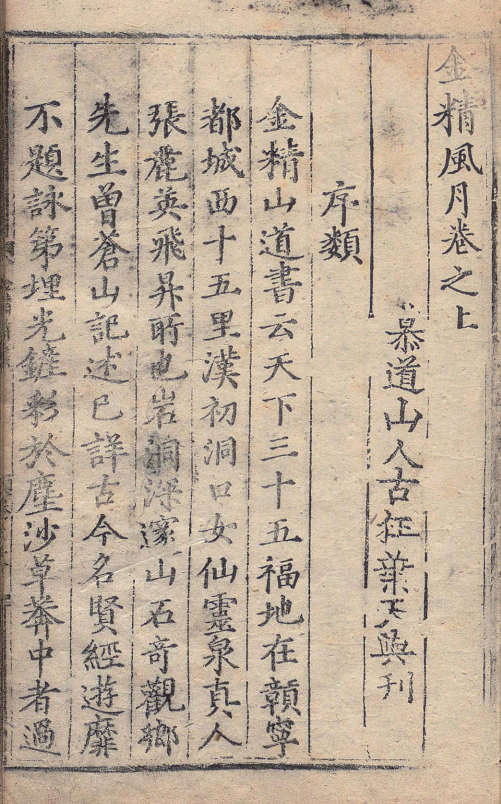 金精風月卷之上
慕道山人古杠葉天與刋
序類
金精山道書云天下三十五福地在贑寧
都城西十五里漢初洞口女仙靈泉真人
張麗英飛昇所也岩洞深邃山石奇觀鄉
先生曾蒼山記述已詳古今名賢經遊靡
不題詠第埋光鏟彩於塵沙草莽中者過